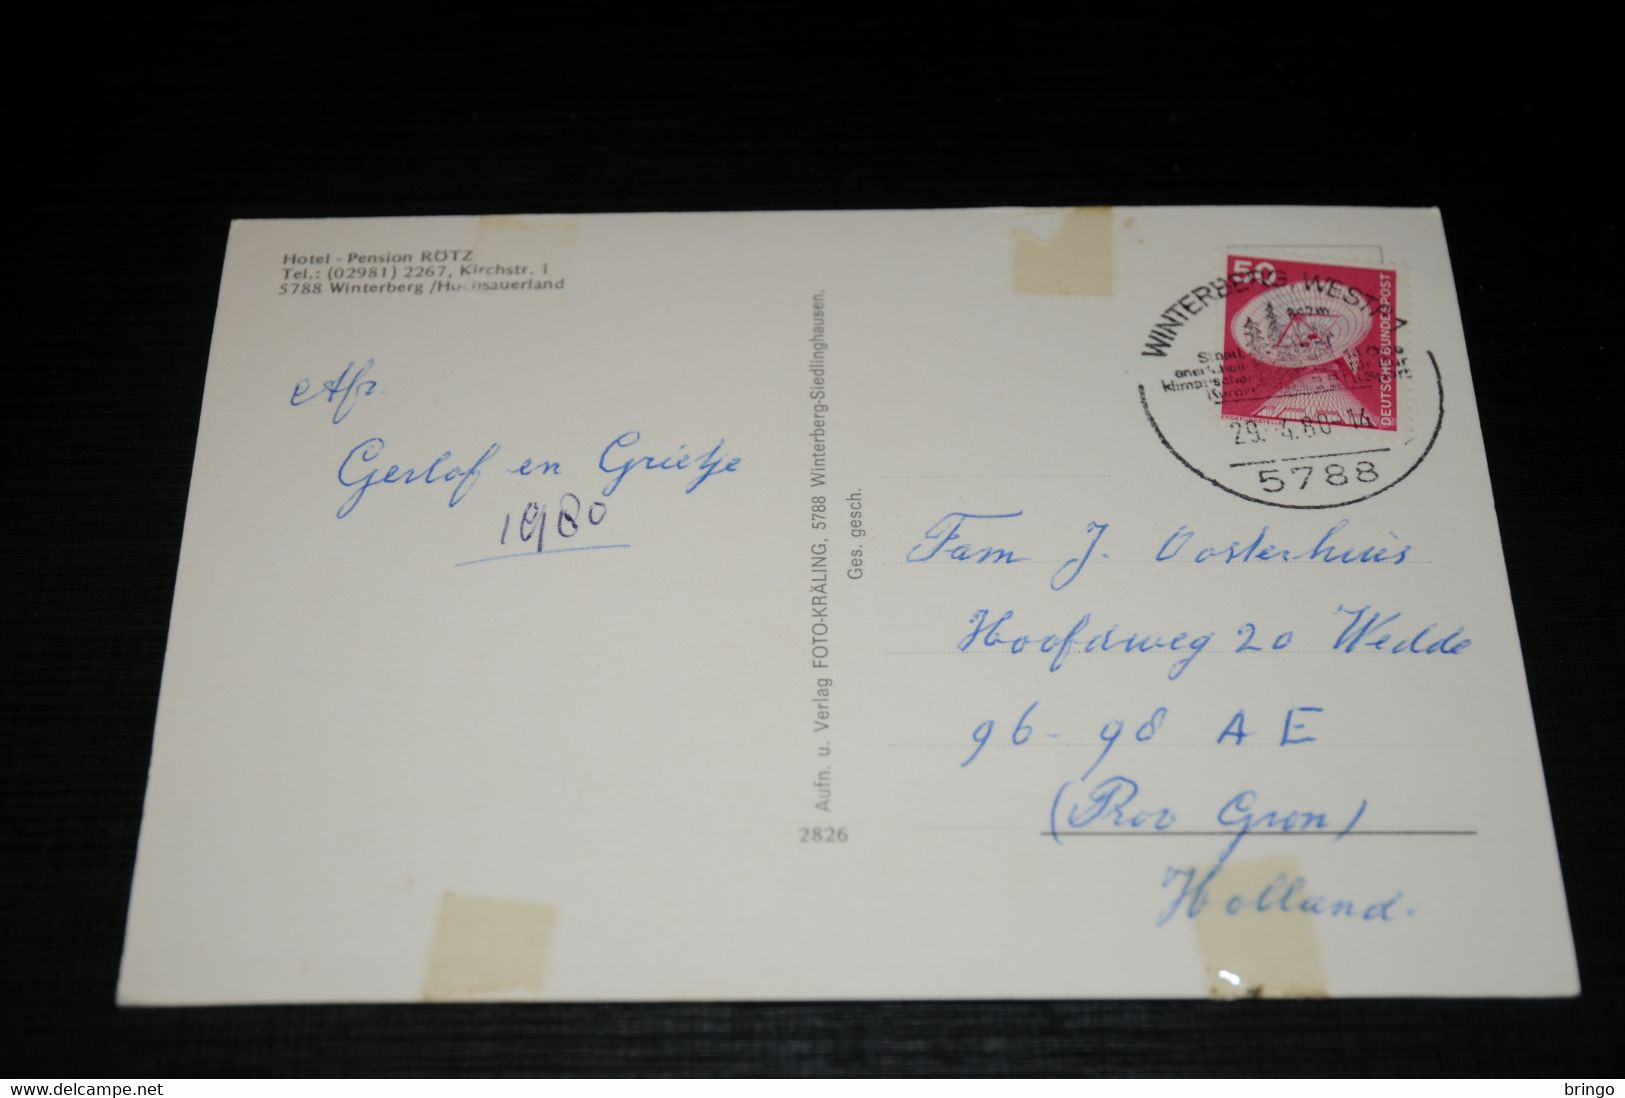 Hotel - Pension RÖTZ
Tel.: (02981) 2267, Kirchstr. 1
5788 Winterberg /Hochsauerland
Afz.
Gerlof en Grietje
1980
Aufn. u. Verlag FOTO-KRÄLING, 5788 Winterberg-Siedlinghausen,
Ges. gesch.
2826
50
DEUTSCHE BUNDESPOST
WINTERBERG, WESTF
Kurort
29.-4.80-14
5788
Fam J. Oosterhuis
Hoofdweg 20 Wedde
96-98 AE
(Prov Gron)
Holland.
© www.delcampe.net
bringo